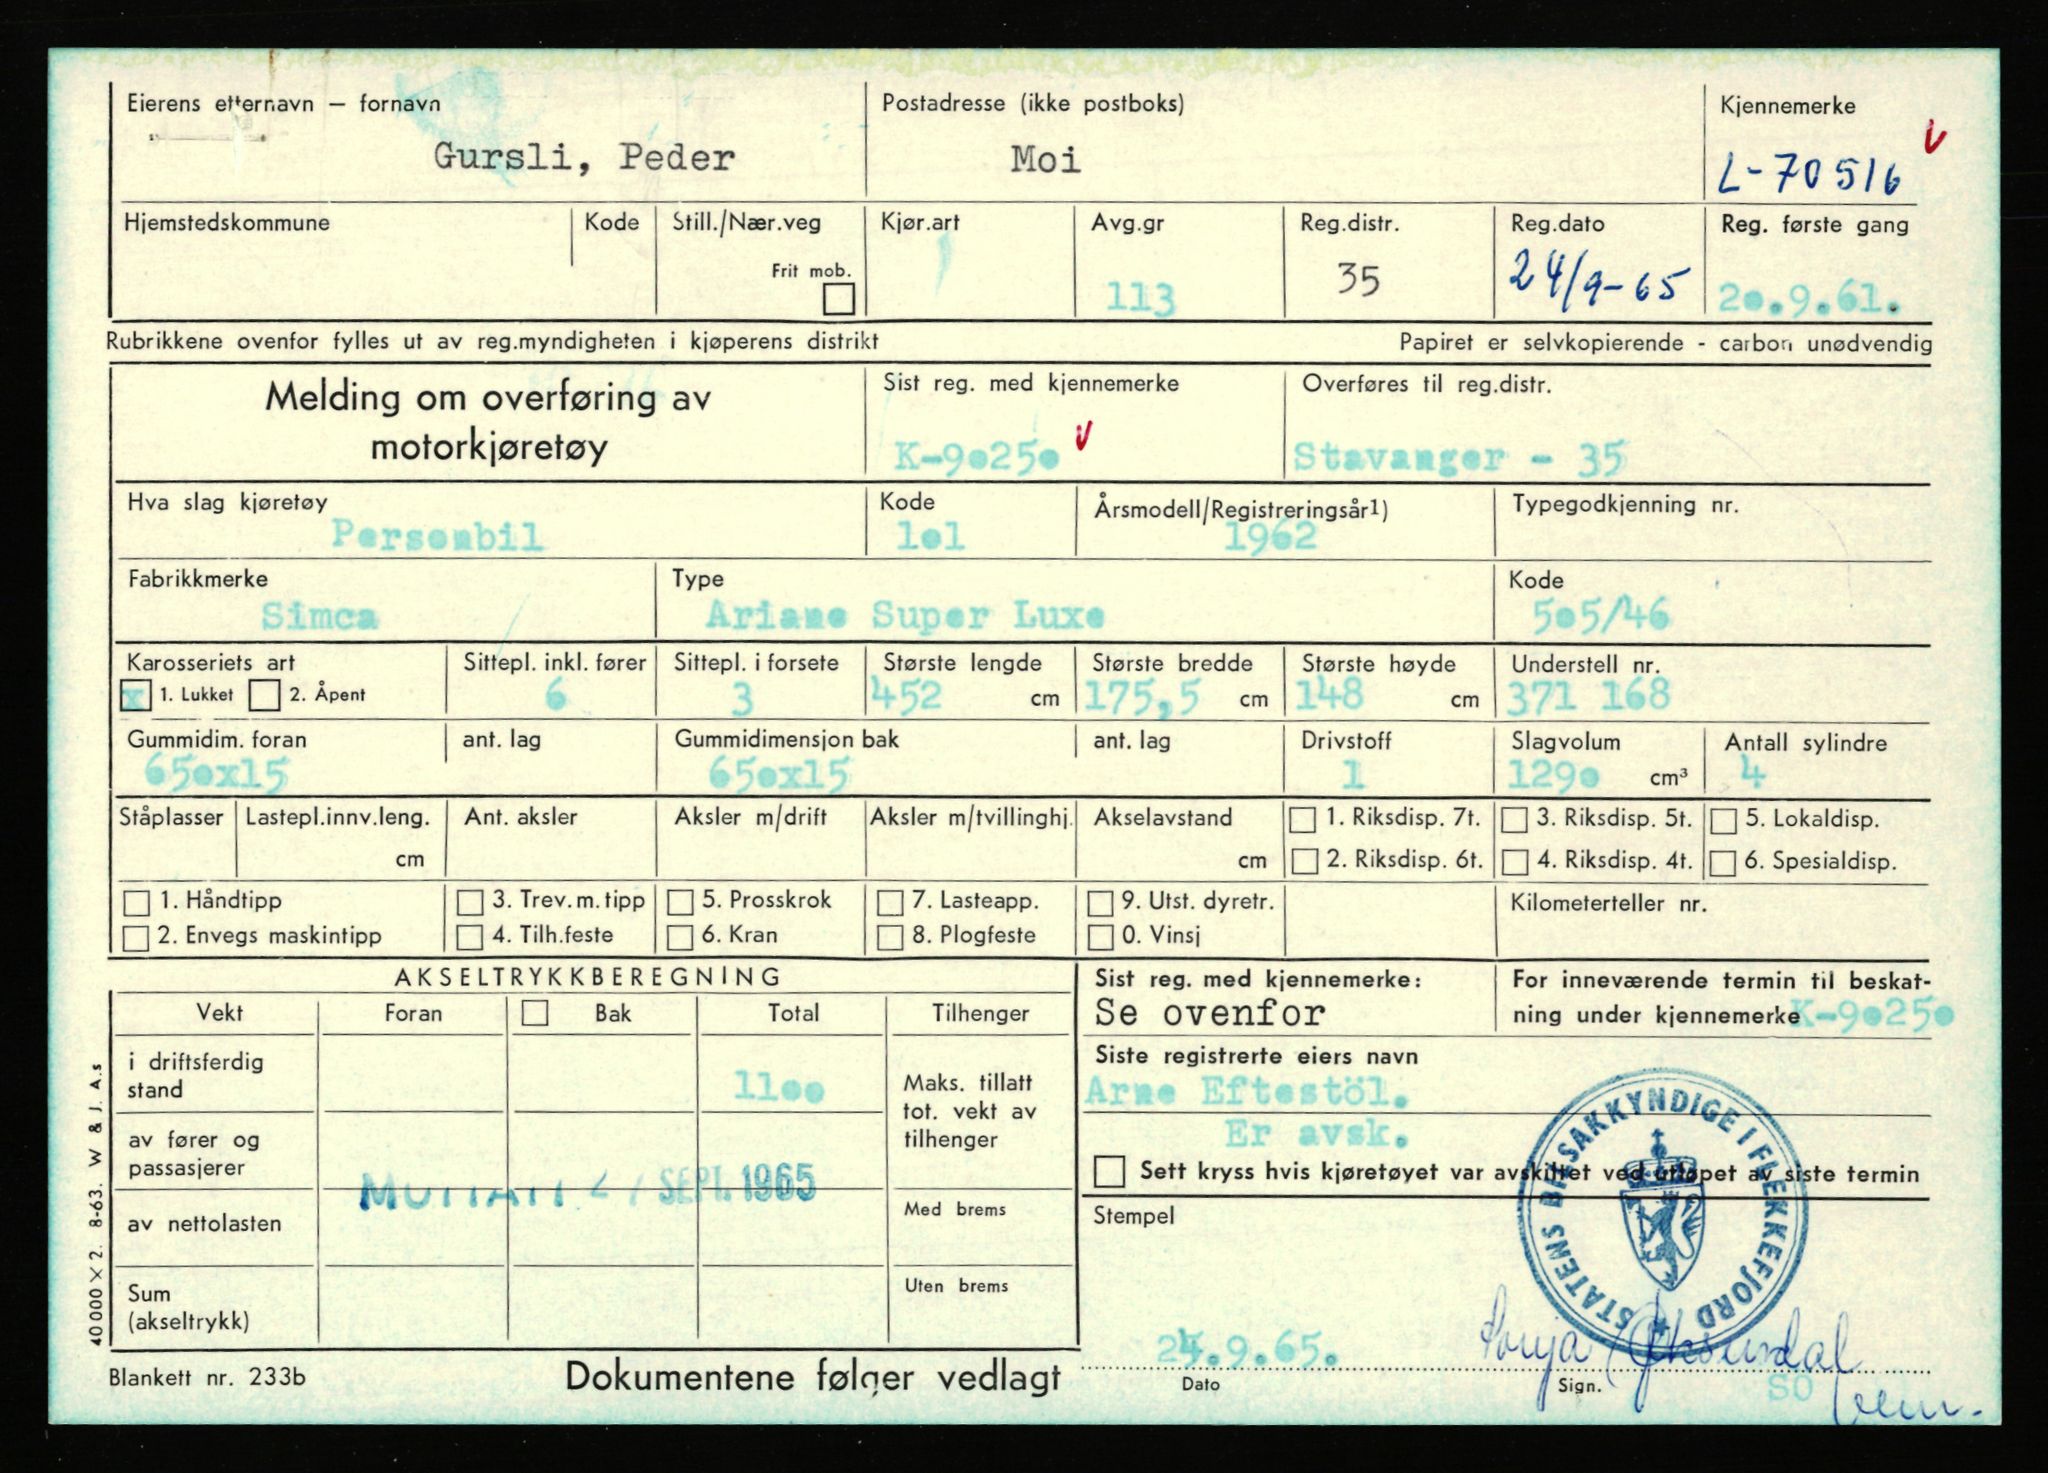 Eierens etternavn – fornavn
Gursli, Peder
Postadresse (ikke postboks)
Moi
Kjennemerke
L-70516
Hjemstedskommune
Kode
Still./Nær.veg
Frit mob.
Kjør.art
Avg.gr
113
Reg.distr.
35
Reg.dato
24/9-65
Reg. første gang
20.9.61.
Rubrikkene ovenfor fylles ut av reg.myndigheten i kjøperens distrikt
Papiret er selvkopierende - carbon unødvendig
Melding om overføring av
motorkjøretøy
Sist reg. med kjennemerke
K-90250
Overføres til reg.distr.
Stavanger - 35
Hva slag kjøretøy
Personbil
Kode
101
Årsmodell/Registreringsår1)
1962
Typegodkjenning nr.
Fabrikkmerke
Simca
Type
Ariane Super Luxe
Kode
505/46
Karosseriets art
x 1. Lukket 2. Åpent
Sittepl. inkl. fører
6
Sittepl. i forsete
3
Største lengde
452 cm
Største bredde
175,5 cm
Største høyde
148 cm
Understell nr.
371 168
Gummidim. foran
650x15
ant. lag
Gummidimensjon bak
650x15
ant. lag
Drivstoff
1
Slagvolum
1290 cm³
Antall sylindre
4
Ståplasser
Lastepl.innv.leng.
cm
Ant. aksler
Aksler m/drift
Aksler m/tvillinghj.
Akselavstand
cm
1. Riksdisp. 7t.
2. Riksdisp. 6t.
3. Riksdisp. 5t.
4. Riksdisp. 4t.
5. Lokaldisp.
6. Spesialdisp.
1. Håndtipp
2. Envegs maskintipp
3. Trev.m.tipp
4. Tilh.feste
5. Prosskrok
6. Kran
7. Lasteapp.
8. Plogfeste
9. Utst. dyretr.
0. Vinsj
Kilometerteller nr.
AKSELTRYKKBEREGNING
Vekt
Foran
Bak
Total
Tilhenger
i driftsferdig
stand
1100
av fører og
passasjerer
av nettolasten
Sum
(akseltrykk)
Maks. tillatt
tot. vekt av
tilhenger
Med brems
Uten brems
MOTTATT SEPT. 1965
Sist reg. med kjennemerke:
Se ovenfor
For inneværende termin til beskat-
ning under kjennemerke K-90250
Siste registrerte eiers navn
Arne Eftestöl.
Er avsk.
Sett kryss hvis kjøretøyet var avskiltet ved utløpet av siste termin
Stempel
STATENS BILSAKKYNDIGE I FLEKKEFJORD
24.9.65.
Dato
Sonja
Sign.
SO
40 000 × 2. 8-63. W & J. A.s
Blankett nr. 233b
Dokumentene følger vedlagt